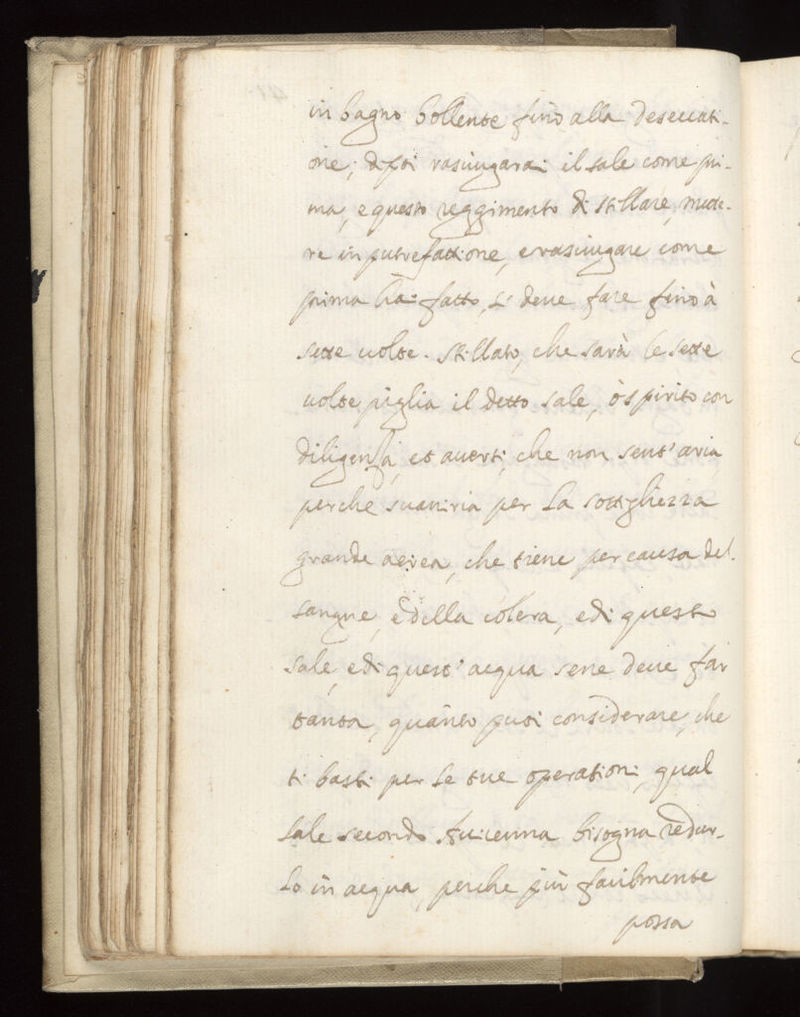 in bagno bollente fino alla deseccati-
one; dipoi rasciugarai il sale come pri-
ma, e questo reggimento di stillare, mette-
re in putrefattione, e rasciugare come
prima hai fatto, si deue fare fino à
sette uolte. Stillato, che sarà le sette
uolte piglia il detto sale, ò spirito con
diligenza, et auerti, che non sent' aria
perche suaniria per la sottighezza
grande aerea, che tiene per causa del
sangue, e della colera, e di questo
sale, e di quest' acqua sene deue far
tanta, quanto puoi considerare, che
ti basti per le tue operationi, qual
sale secondo Auicenna bisogna redur-
lo in acqua, perche più facilmente
possa